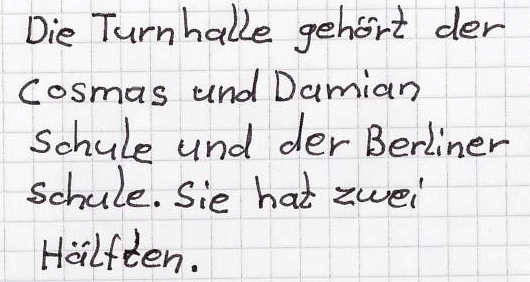 Die Turnhalle gehört der
Cosmas und Damian
Schule und der Berliner
Schule. Sie hat zwei
Hälften.